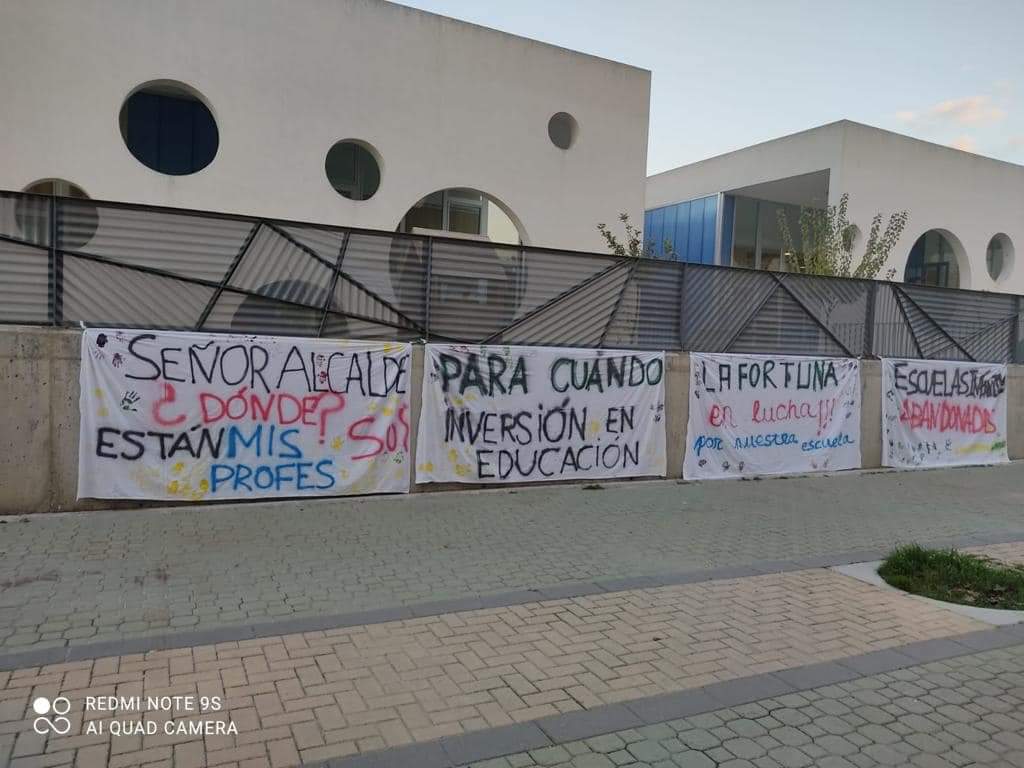 SEÑOR ALCALDE
¿DÓNDE?
ESTÁN MIS
PROFES
S.O.S
PARA CUÁNDO
INVERSIÓN EN
EDUCACIÓN
LA FORTUNA
en lucha!!!
por nuestra escuela
ESCUELAS INFANTILES
ABANDONADAS
REDMI NOTE 9S
AI QUAD CAMERA